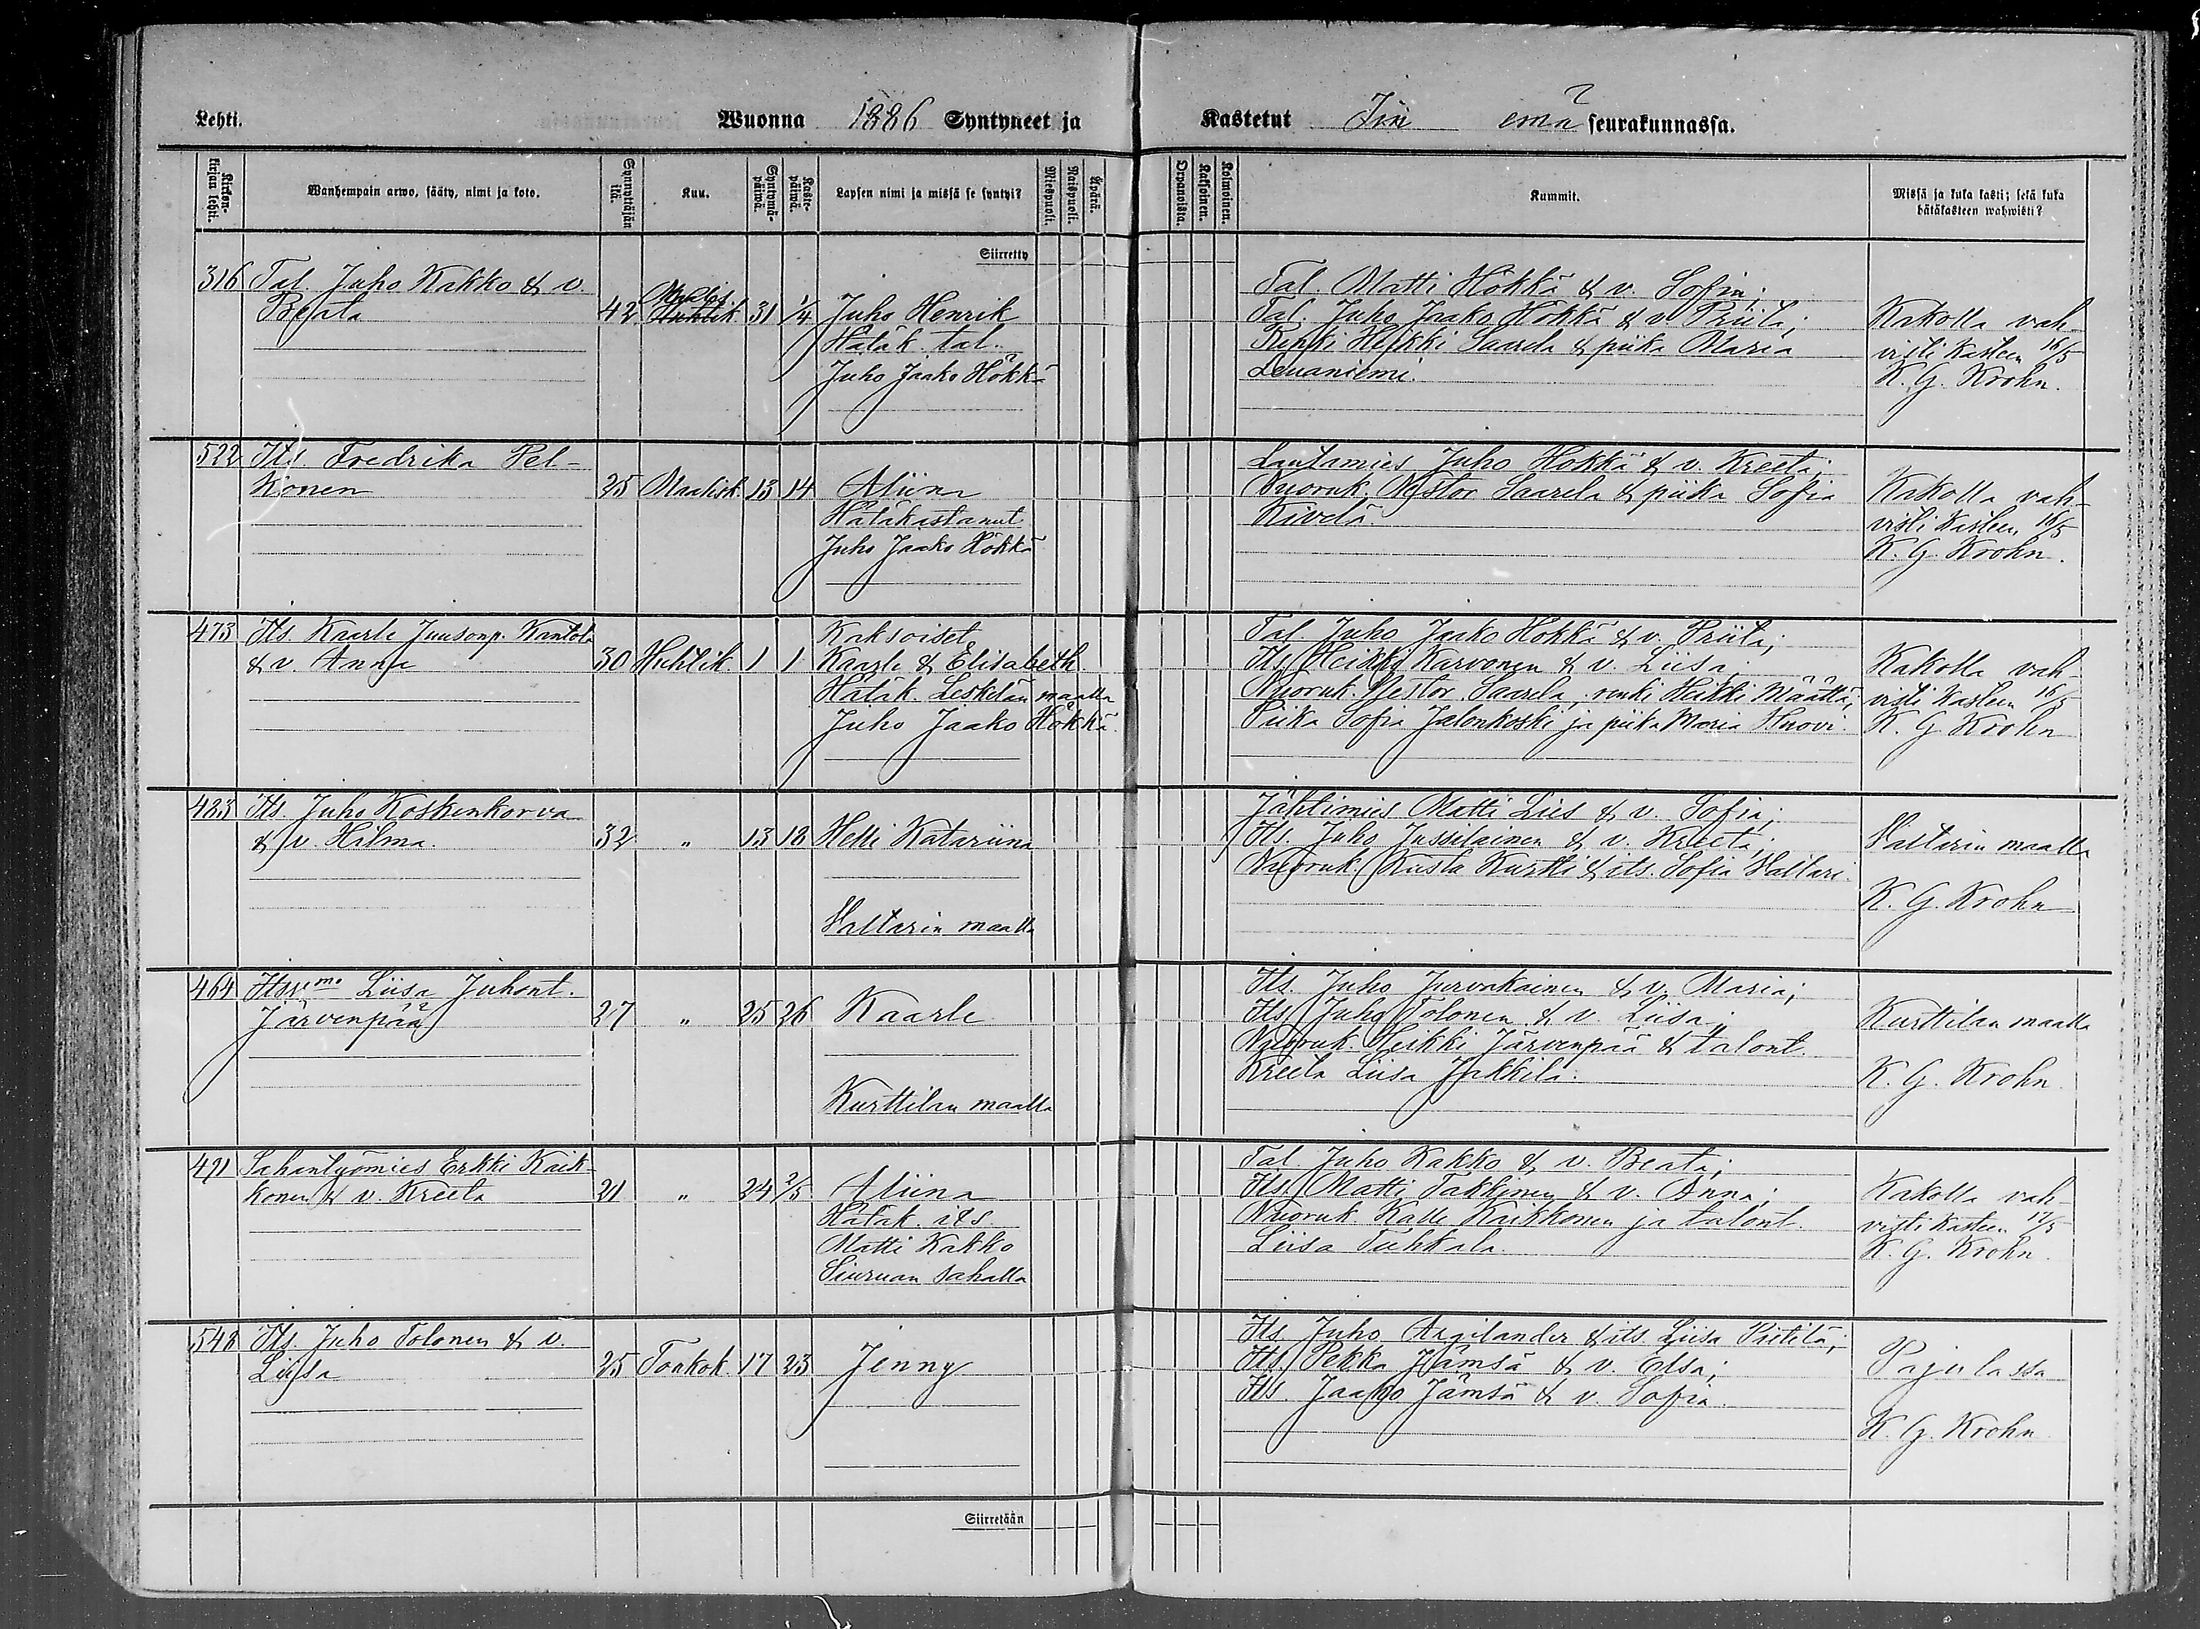 Lehti.
Wuonna 1886 Syntyneet ja
Kastetut Iin emä seurakunnassa.
Kirkonkirjan lehti.
Wanhempain arwo, sääty, nimi ja koto.
Synnyttäjän ikä.
Kuu.
Syntymäpäiwä.
Kastepäiwä.
Lapsen nimi ja missä se syntyi?
Miespuoli.
Naispuoli.
Äpärä.
Orpanoista.
Kaksoinen.
Kolmoinen.
Kummit.
Missä ja kuka kasti; sekä kuka
hätäkasteen wahwisti?
Siirretty
316 Tal. Juho Kakko & v.
Beata 42 Maalis. Huhtik 31 1/4 Juho Henrik
Hätäk. tal.
Juho Jaako Hökkä
Tal. Matti Hökkä & v. Sofia;
Tal. Juho Jaako Hökkä & v. Priita;
Renki Heikki Saarela & piika Maria
Leuaniemi.
Kakolla vah-
visti kasteen 16/5
K. G. Krohn.
522 Its. Fredrika Pel-
konen 25 Maalisk. 13 14 Miina
Hätäkastanut
Juho Jaako Hökkä
Lautamies Juho Hökkä & v. Kreeta;
Nuoruk. Nestor Saarela & piika Sofia
Kivelä.
Kakolla vah-
visti kasteen 16/5
K. G. Krohn.
473 Its. Kaarle Juusonp. Kantola
& v. Anna 30 Huhtik. 1 1 Kaksoiset
Kaarle & Elisabeth
Hätäk. Leskelän maalla
Juho Jaako Hökkä.
Tal. Juho Jaako Hökkä & v. Priita;
Its. Heikki Karvonen & v. Liisa;
Nuoruk. Nestor Saarela, renki Heikki Määttä,
Piika Sofia Jalonkoski ja piika Maria Huovi.
Kakolla vah-
visti kasteen 16/5
K. G. Krohn
483 Its. Juho Koskenkorva
& v. Hilma. 32 " 13 18 Helli Katariina
Haltarin maalla
Jähtimies Matti Lies & v. Sofia;
Its. Juho Jussilainen & v. Kreeta;
Nuoruk. Kusta Kurtti & its. Sofia Haltari.
Haltarin maalla
K. G. Krohn
464 Liisa Juhont.
Järvenpää 27 " 25 26 Kaarle
Kurttilan maalla
Its. Juho Jurvakainen & v. Maria;
Its. Juho Tolonen & v. Liisa;
Nuoruk. Heikki Järvenpää & talont.
Kreeta Liisa Jakkila.
Kurttilan maalla
K. G. Krohn
491 Sahantyömies Erkki Kaik-
konen & v. Kreeta 21 " 24 2/5 Miina
Hätäk. its.
Matti Kakko
Siuruan sahalla
Tal. Juho Kakko & v. Beata;
Its. Matti Takkinen & v. Anna;
Nuoruk. Kalle Kaikkonen ja talont.
Liisa Tuhkala.
Kakolla vah-
visti kasteen 17/5
K. G. Krohn.
548 Its. Juho Tolonen & v.
Liisa 25 Toukok. 17 23 Jenny
Its. Juho Argilander & its. Liisa Pietilä;
Its. Pekka Jämsä & v. Elsa;
Its. Jaakko Jämsä & v. Sofia.
Pajulassa
K. G. Krohn
Siirretään